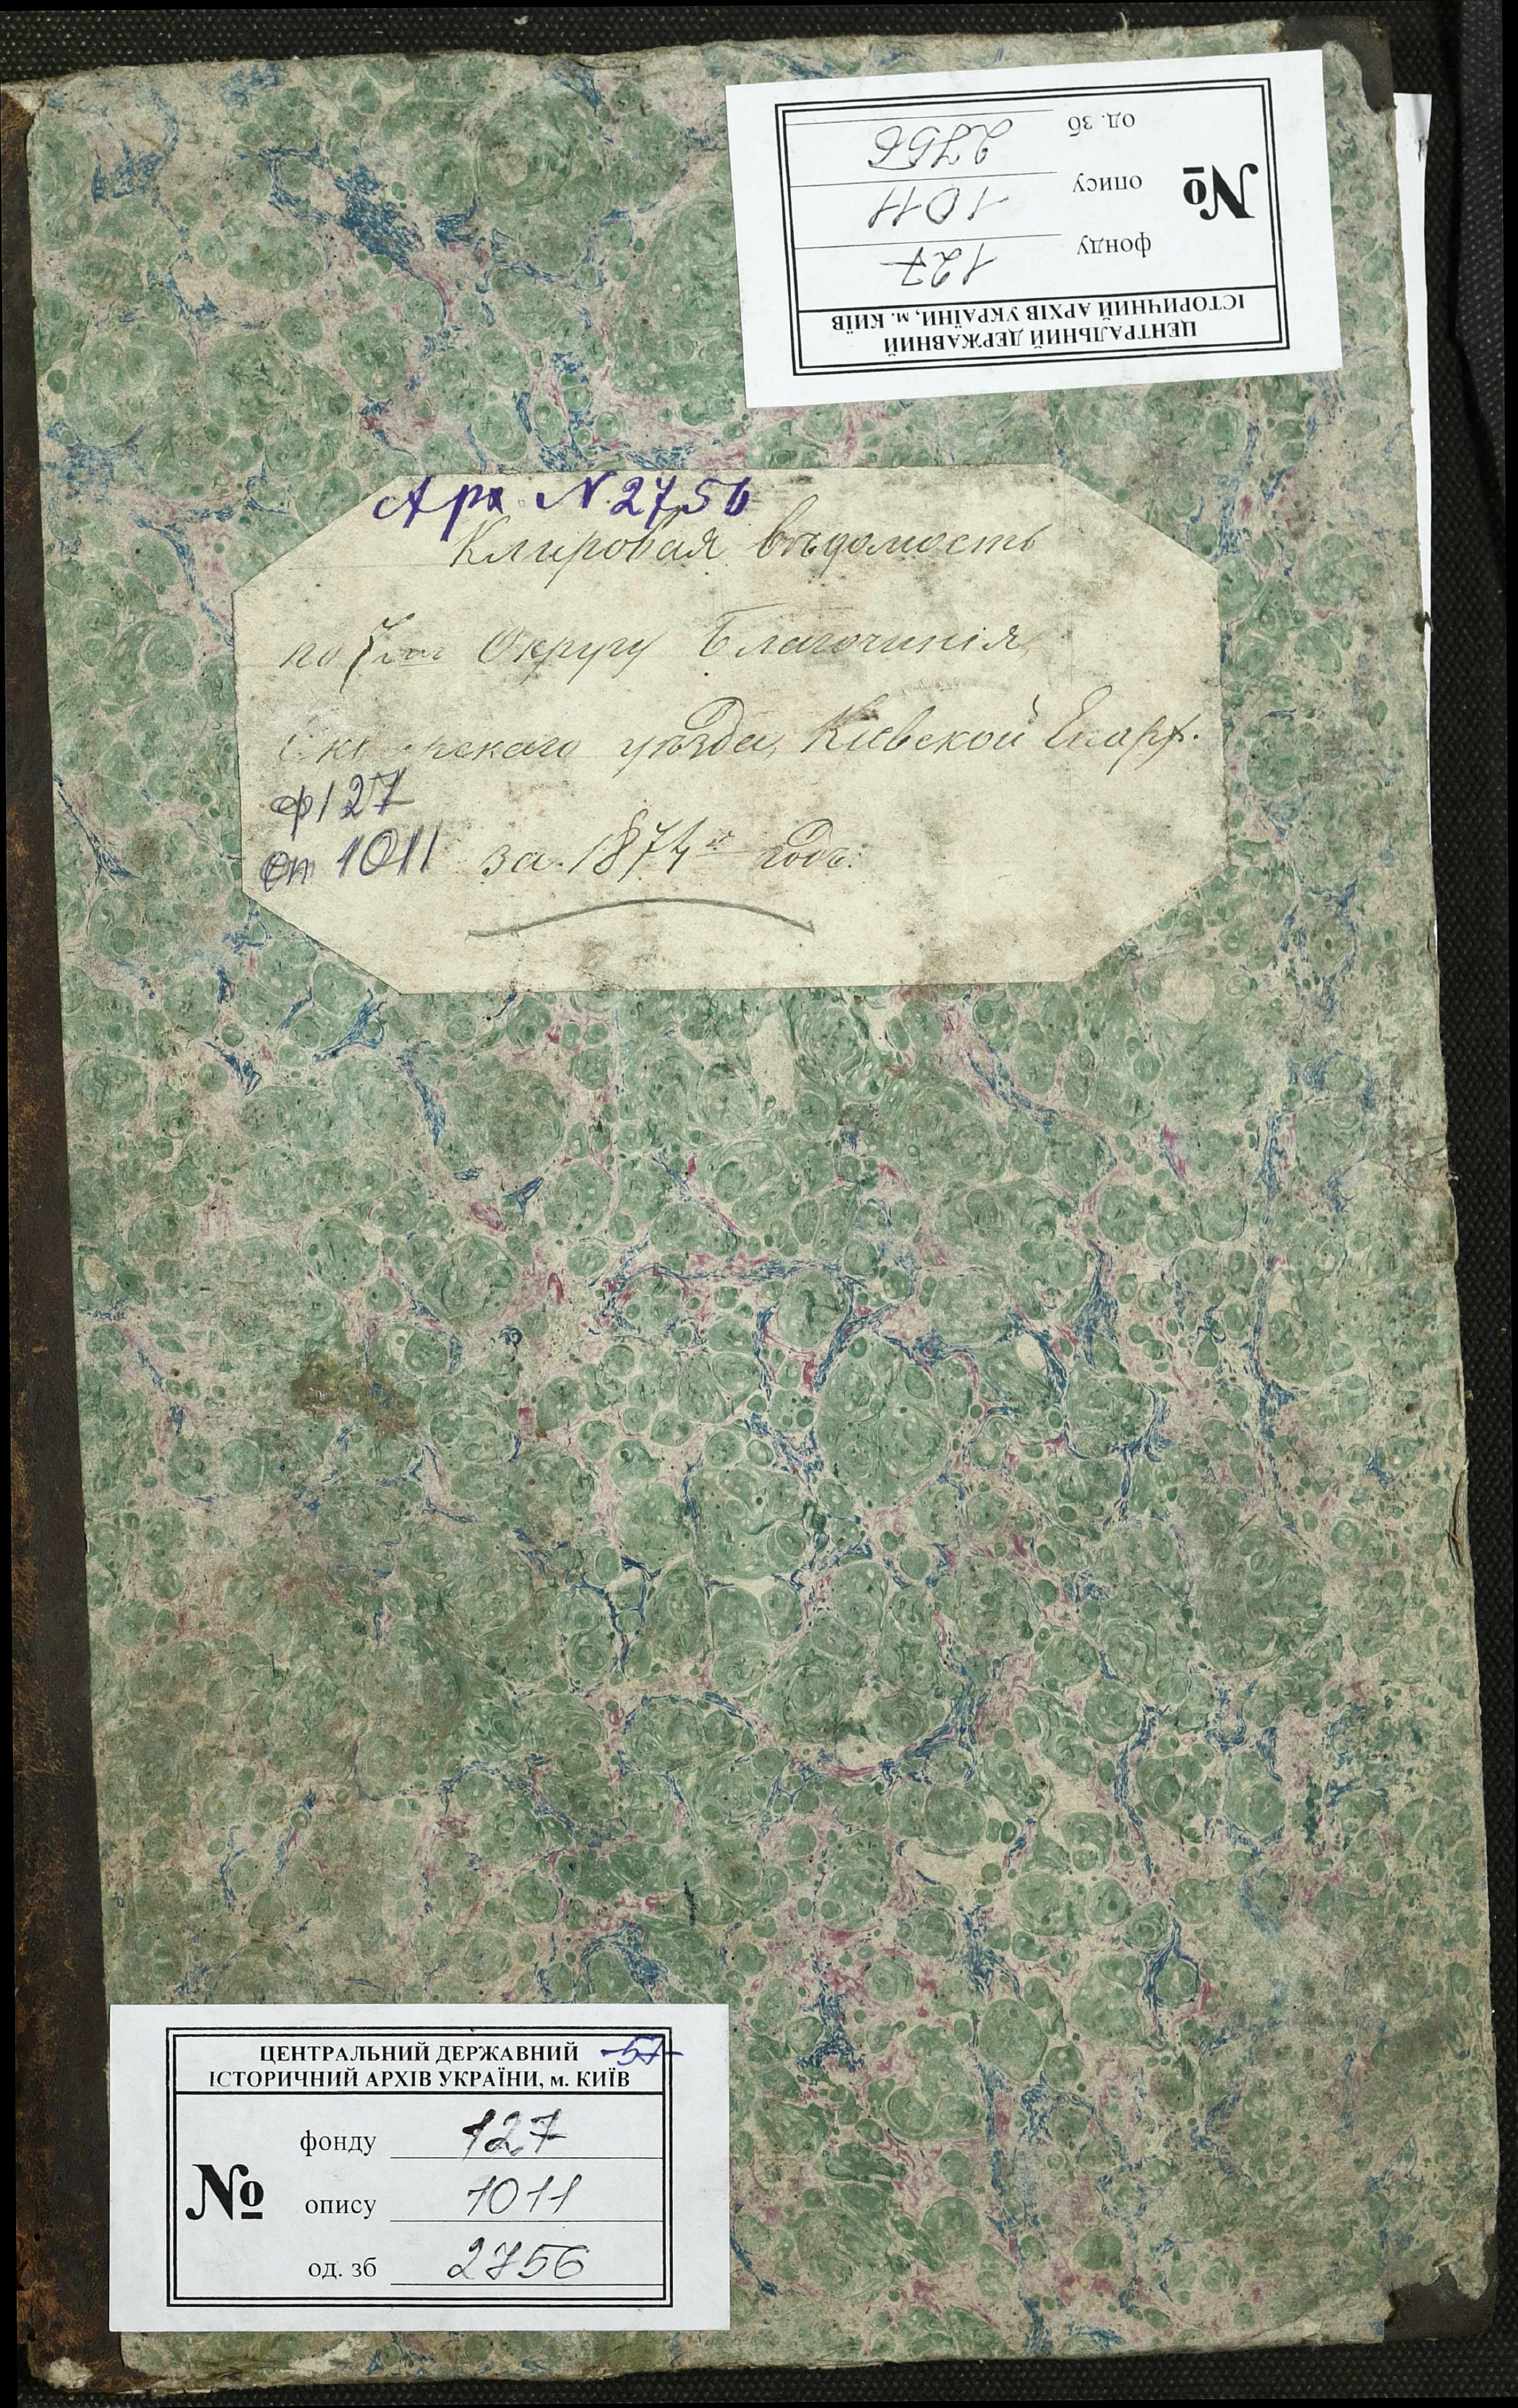 ЦЕНТРАЛЬНИЙ ДЕРЖАВНИЙ
ІСТОРИЧНИЙ АРХІВ УКРАЇНИ, м. КИЇВ
№
фонду 127
опису 1011
од. зб 2756
Арх. N. 2756
Клировая вѣдомость
по Округу Благочинія
уѣзда, Кіевской Епарх.
ф 127
оп 1011
за 1874й годъ.
ЦЕНТРАЛЬНИЙ ДЕРЖАВНИЙ -57-
ІСТОРИЧНИЙ АРХІВ УКРАЇНИ, м. КИЇВ
№
фонду 127
опису 1011
од. зб 2756